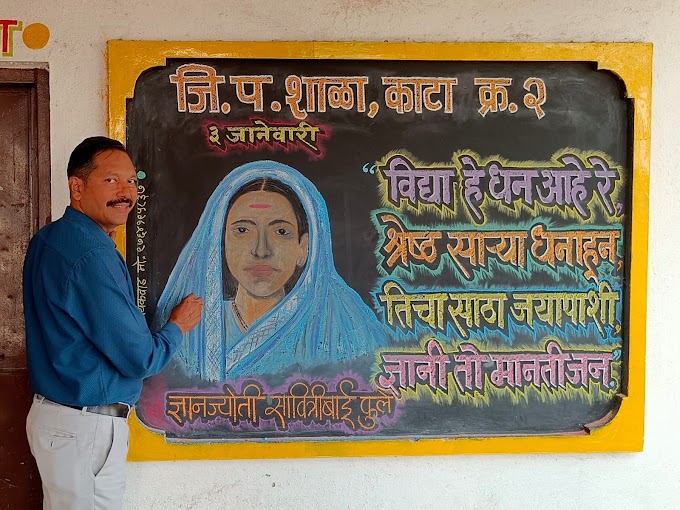 जि.प.शाळा, काटा क्र.२
३ जानेवारी
"विद्या हे धन आहे रे,
श्रेष्ठ साऱ्या धनाहून,
तिचा साठा जयापाशी,
ज्ञानी तो मानती जन."
ज्ञानज्योती सावित्रीबाई फुले